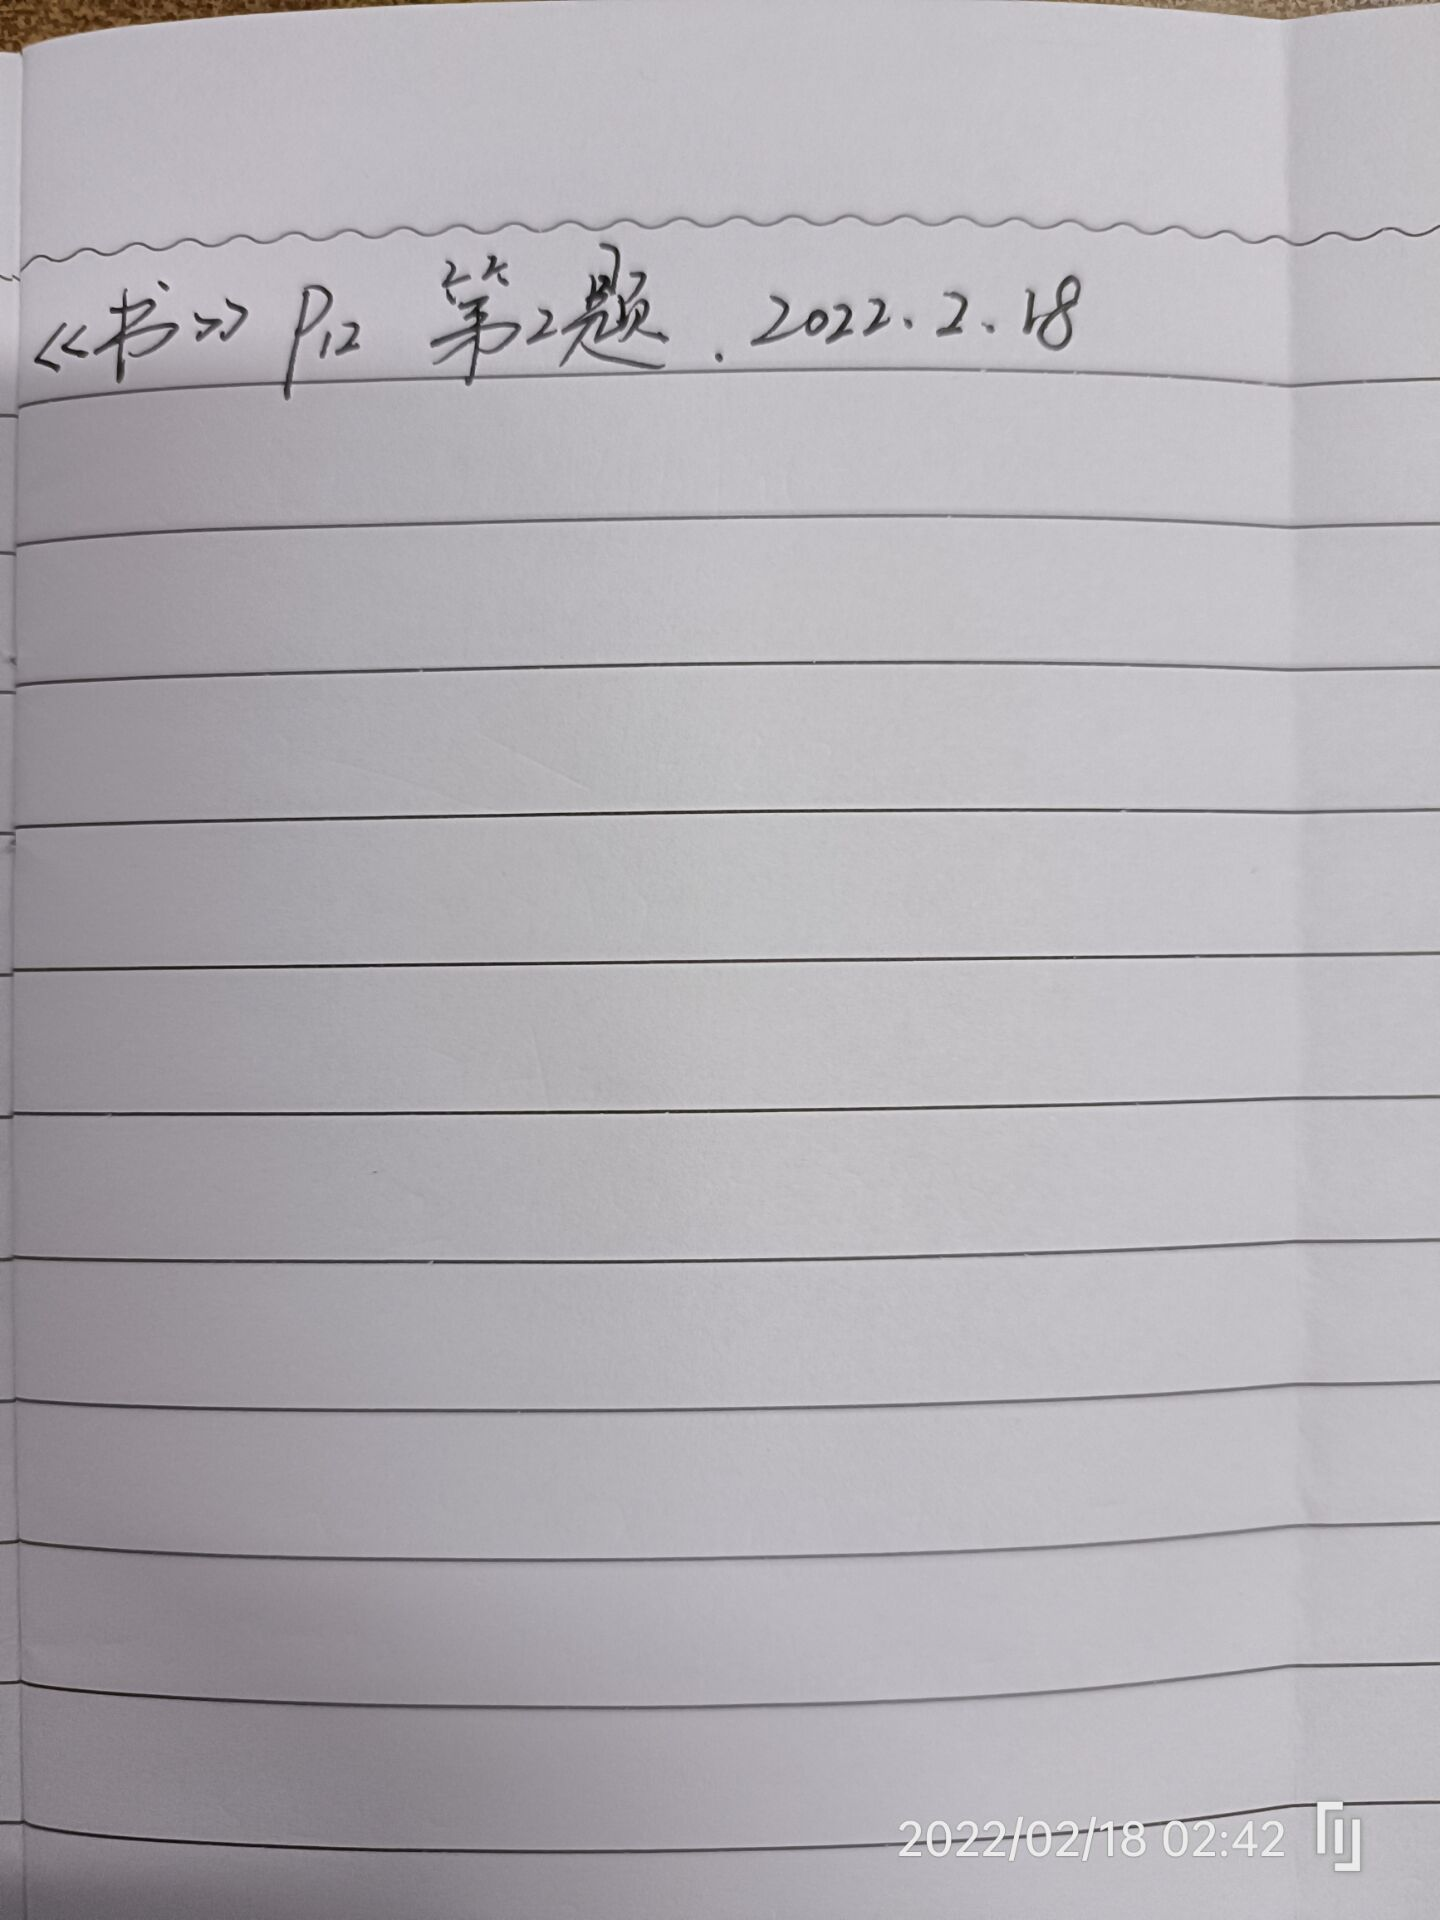 《书》 P12 第2题. 2022.2.18
2022/02/18 02:42